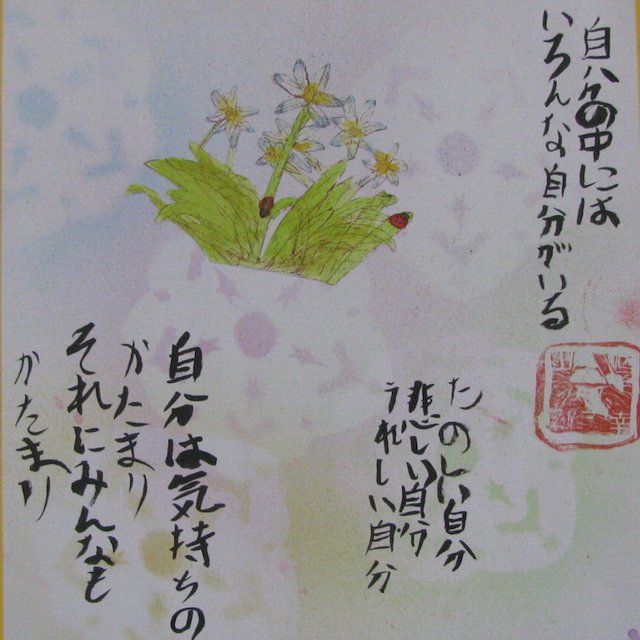 自分の中には
いろんな自分がいる
たのしい自分
悲しい自分
うれしい自分
自分は気持ちの
かたまり
それにみんなも
かたまり